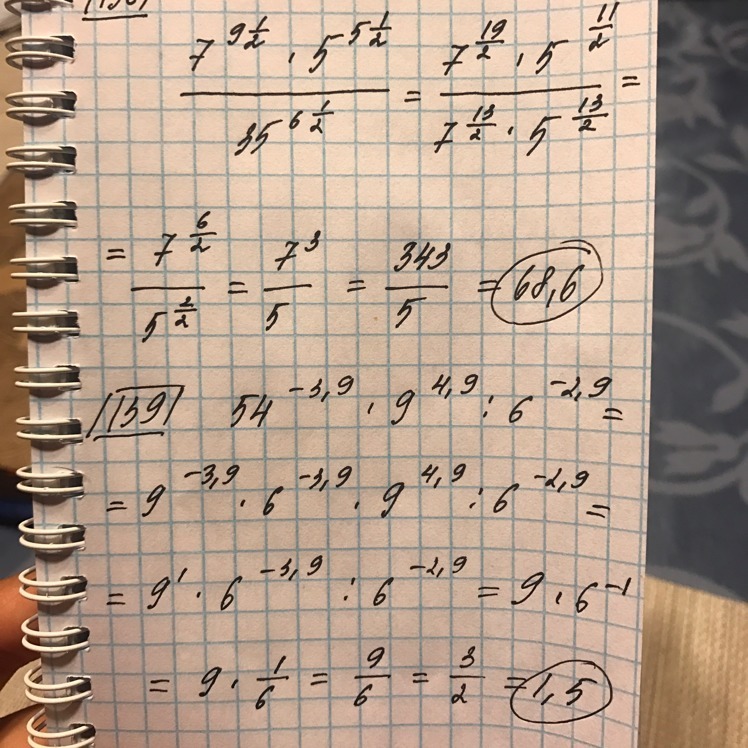 7^{9 1/2} · 5^{5 1/2} / 35^{6 1/2} = 7^{19/2} · 5^{11/2} / 7^{13/2} · 5^{13/2} =
= 7^{6/2} / 5^{2/2} = 7^3 / 5 = 343 / 5 = 68,6
|139| 54^{-3,9} · 9^{4,9} : 6^{-2,9} =
= 9^{-3,9} · 6^{-3,9} · 9^{4,9} : 6^{-2,9} =
= 9^1 · 6^{-3,9} : 6^{-2,9} = 9 · 6^{-1}
= 9 · 1/6 = 9/6 = 3/2 = 1,5